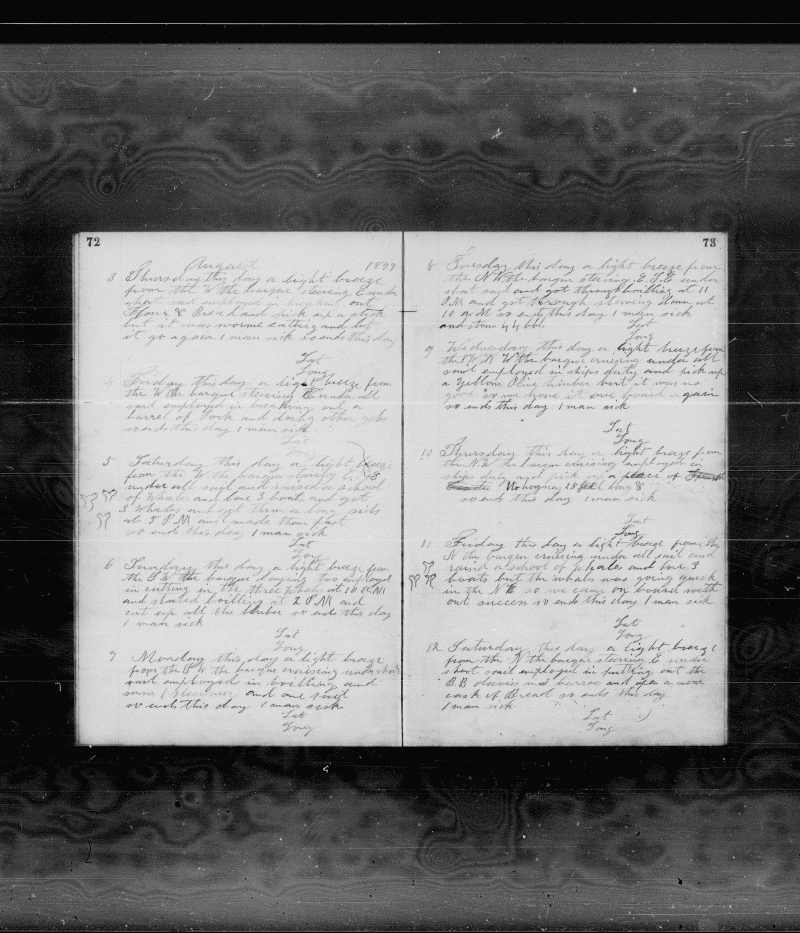 72
August 1899
3 Thursday this day a light breeze
from the W the barque steering E under
short sail employed in out
Flour & Bread and pick up a stick
but it was worme eating and let
it go again 1 man sick so ends this day
Lat
Long
4 Friday this day a light breeze from
the W the barque steering E under all
sail employed in breaking out a
barrel of Pork and doing other jobs
so ends this day 1 man sick
Lat
Long
5 Saturday this day a light breeze
from the W the barque steering E
under all sail and raised a school
of Whales and lore 3 boats and got
3 Whales and got them a long side
at 5 P M and made them fast
so ends this day 1 man sick
Lat
Long
6 Sunday this day a light breeze from
the S W the barque laying too employed
in cutting in the three whales at 10 A M
and started boilling at 2 P M and
cut up all the bluber so ends this day
1 man sick
Lat
Long
7 Monday this day a light breeze
from the S W the barque cruising under short
sail employed in boilling and
saw 1 Steamer and one sail
so ends this day 1 man sick
Lat
Long
73
8 Tuesday this day a light breeze from
the N W the barque steering E under
short sail and got through boilling at 11
P M and got through stowing down at
10 A M so ends this day 1 man sick
and stow 44 bbl Lat
Long
9 Wednesday this day a light breeze from
the W N W the barque cruising under all
sail employed in ships duty and pick up
a Yellow Pine timber but it was no
good so we hove it over board again
so ends this day 1 man sick
Lat
Long
10 Thursday this day a light breeze from
the N W the barque cruising employed in
ships duty and pick up a place of
Mahogany 15 feet long 8
so ends this day 1 man sick
Lat
Long
11 Friday this day a light breeze from the
N the barque cruising under all sail and
raised a school of Whales and lore 3
boats but the whales was going quick
in the N E so we came on board with
out success so ends this day 1 man sick
Lat
Long
12 Saturday this day a light breeze
from the N the barque steering E under
short sail employed in putting out the
B B davies and open a new
cask of Bread so ends this day
1 man sick
Lat
Long